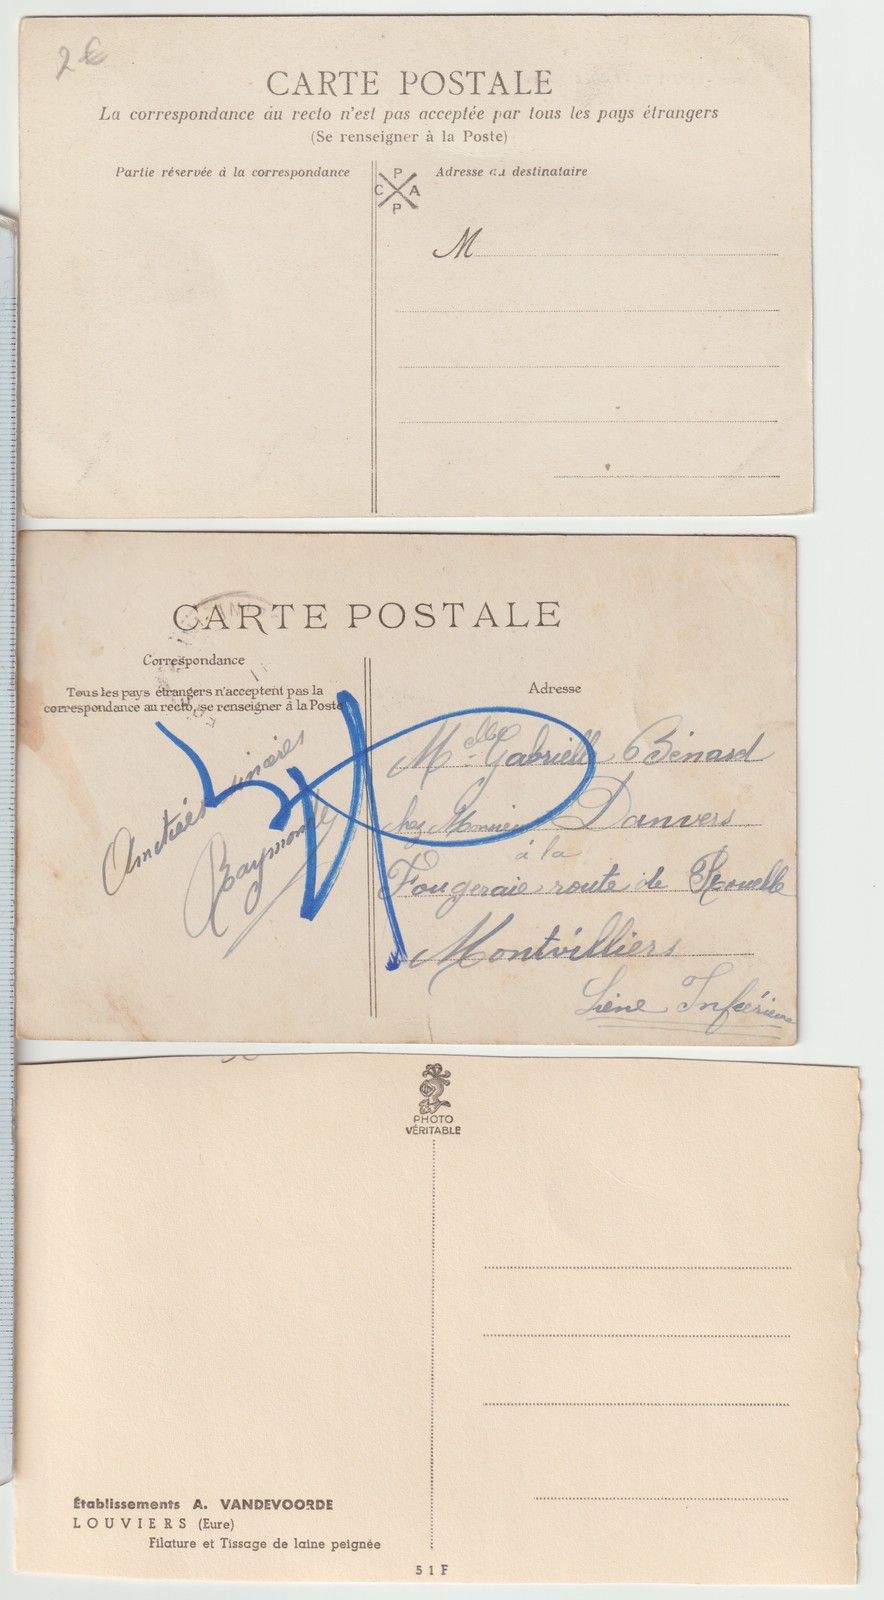 2€
CARTE POSTALE
La correspondance au recto n'est pas acceptée par tous les pays étrangers
(Se renseigner à la Poste)
Partie réservée à la correspondance
P
C A
P
Adresse du destinataire
M
CARTE POSTALE
Correspondance
Tous les pays étrangers n'acceptent pas la
correspondance au recto, se renseigner à la Poste
Amitiés sincères
Raymonde
Adresse
Melle Gabrielle Bénard
chez Monsieur Danvers
à la
Fougeraie route de Rouelle
Montvilliers
Seine Inférieure
PHOTO
VÉRITABLE
Établissements A. VANDEVOORDE
LOUVIERS (Eure)
Filature et Tissage de laine peignée
51F